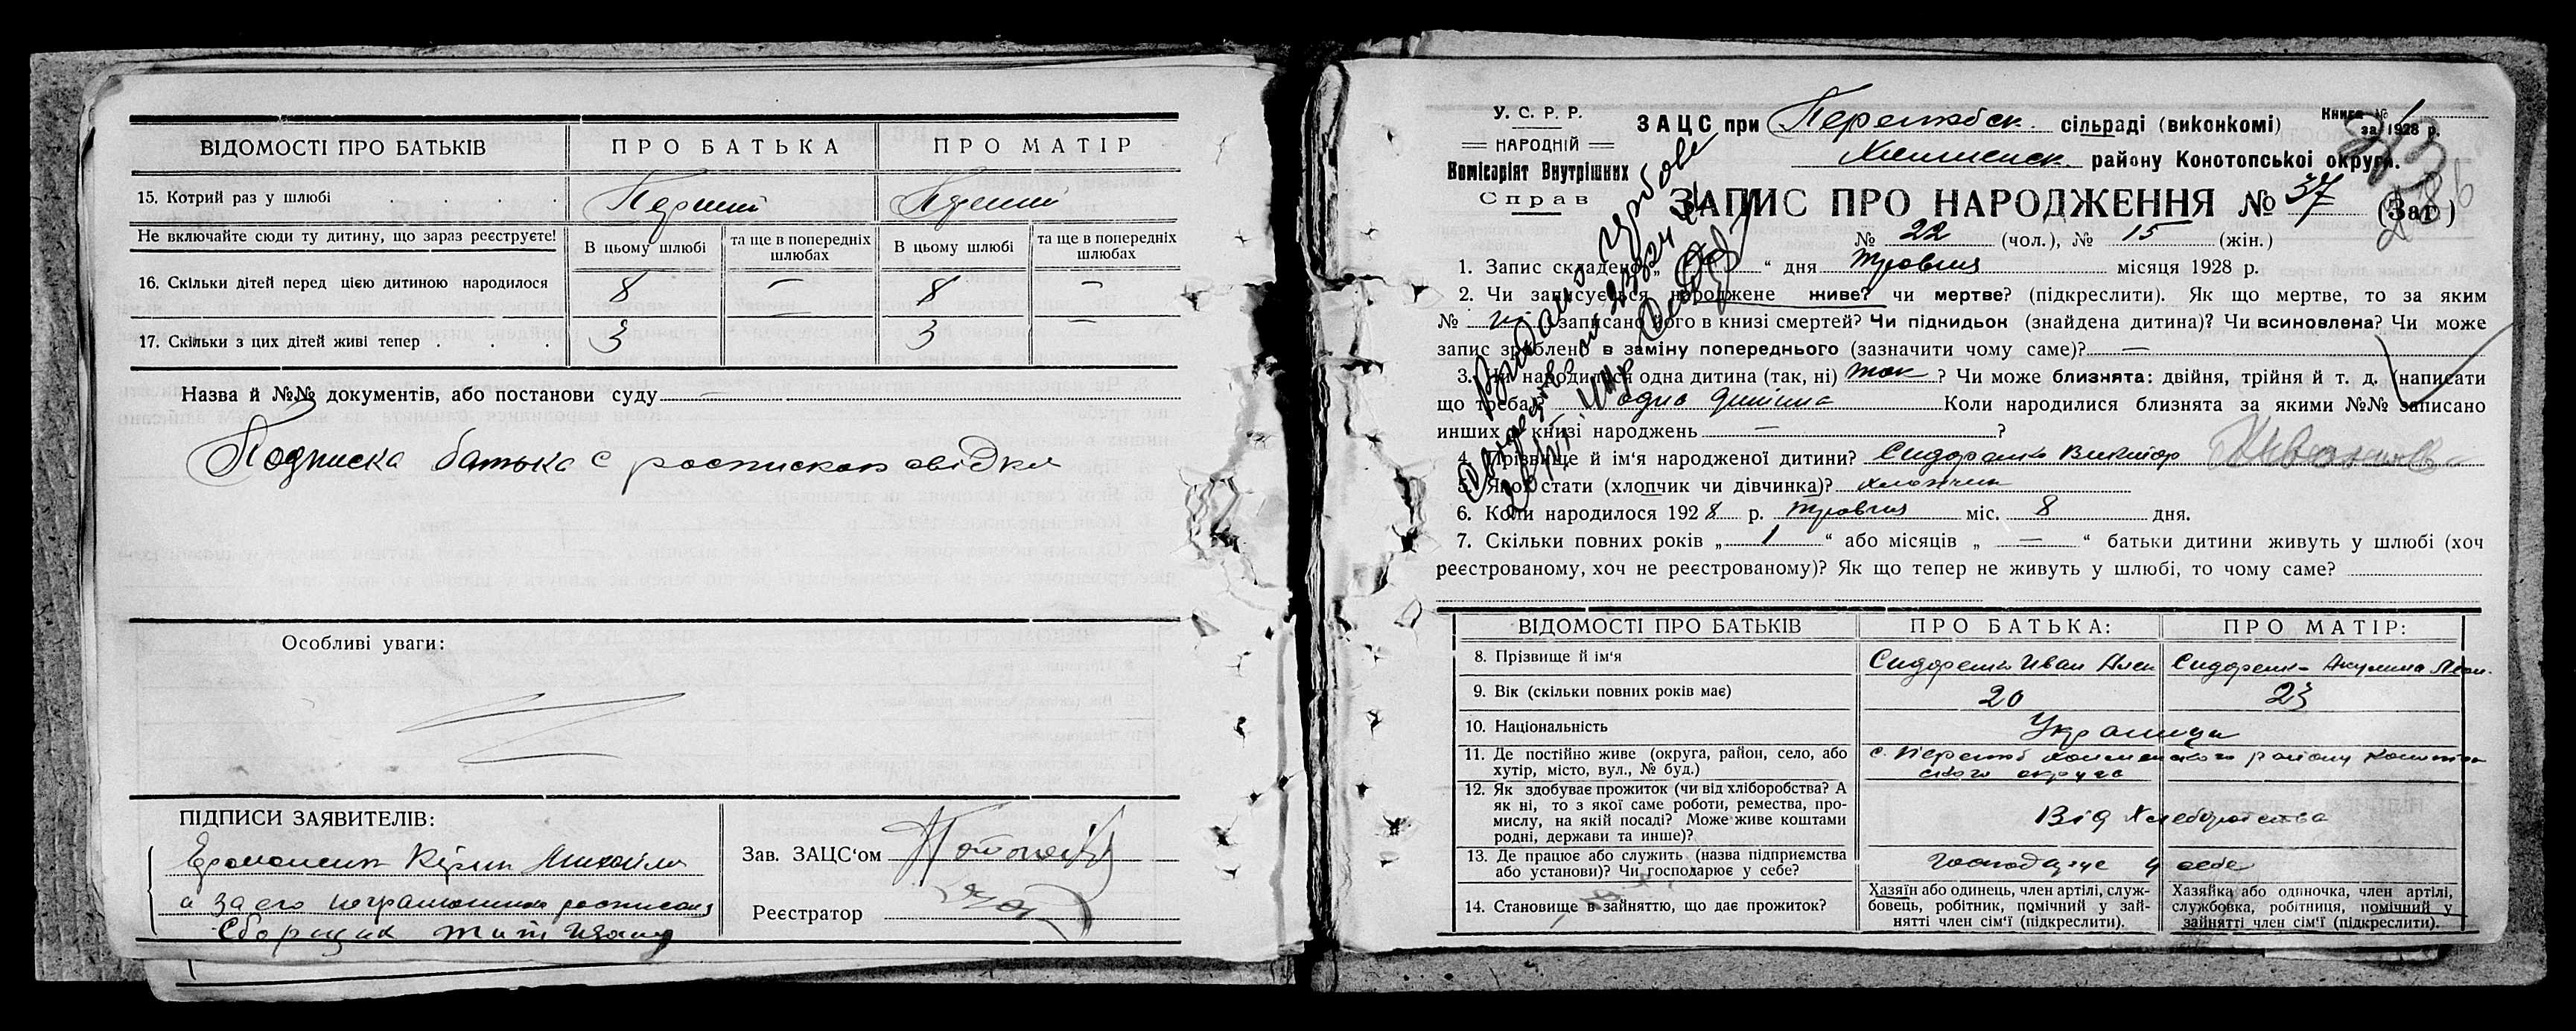 ВІДОМОСТІ ПРО БАТЬКІВ
ПРО БАТЬКА
ПРО МАТІР
15. Котрий раз у шлюбі
Перший
Перший
Не включайте сюди ту дитину, що зараз реєструєте!
В цьому шлюбі
та ще в попередніх шлюбах
В цьому шлюбі
та ще в попередніх шлюбах
16. Скільки дітей перед цією дитиною народилося
8 — 8 —
17. Скільки з цих дітей живі тепер
3 — 3 —
Назва й №№ документів, або постанови суду —
Подписка батька с
Особливі уваги:
ПІДПИСИ ЗАЯВИТЕЛІВ:
и за его
Сборщик
Зав. ЗАЦС'ом
Реєстратор
У. С. Р. Р.
НАРОДНІЙ
Комісаріят Внутрішних
Справ
ЗАЦС при сільраді (виконкомі)
району Конотопської округи.
Книга №
за 1928 р.
ЗАПИС ПРО НАРОДЖЕННЯ № 37 (Заг)
№ 22 (чол.), № 15 (жін.)
1. Запис складено „ “ дня Травня місяця 1928 р.
2. Чи записується народжене живе? чи мертве? (підкреслити). Як що мертве, то за яким
№ записано його в книзі смертей? Чи підкидьок (знайдена дитина)? Чи всиновлена? Чи може
запис зроблено в заміну попереднього (зазначити чому саме)? —
3. Чи народилася одна дитина (так, ні) так ? Чи може близнята: двійня, трійня й т. д. (написати
що треба)? одна дитина Коли народилися близнята за якими №№ записано
инших в книзі народжень — ?
4. Прізвище й ім'я народженої дитини? Сидоренко Виктор
5. Якої стати (хлопчик чи дівчинка)? хлопчик
6. Коли народилося 1928 р. Травня міс. 8 дня.
7. Скільки повних років „ 1 “ або місяців „ — “ батьки дитини живуть у шлюбі (хоч
реєстрованому, хоч не реєстрованому)? Як що тепер не живуть у шлюбі, то чому саме?
ВІДОМОСТІ ПРО БАТЬКІВ
ПРО БАТЬКА:
ПРО МАТІР:
8. Прізвище й ім'я
Сидоренко Иван Алек
Сидоренко Акулина
9. Вік (скільки повних років має)
20
23
10. Національність
Украинци
11. Де постійно живе (округа, район, село, або
хутір, місто, вул., № буд.)
12. Як здобуває прожиток (чи від хліборобства? А
як ні, то з якої саме роботи, ремества, про-
мислу, на якій посаді? Може живе коштами
родні, держави та инше)?
Від Хлеборобства
13. Де працює або служить (назва підприємства
або установи)? Чи господарює у себе?
господарує у себе
14. Становище в зайняттю, що дає прожиток?
Хазяїн або одинець, член артілі, служ-
бовець, робітник, помічний у зай-
нятті член сім'ї (підкреслити).
Хазяйка або одиночка, член артілі,
службовка, робітниця, помічний у
зайнятті член сім'ї (підкреслити).